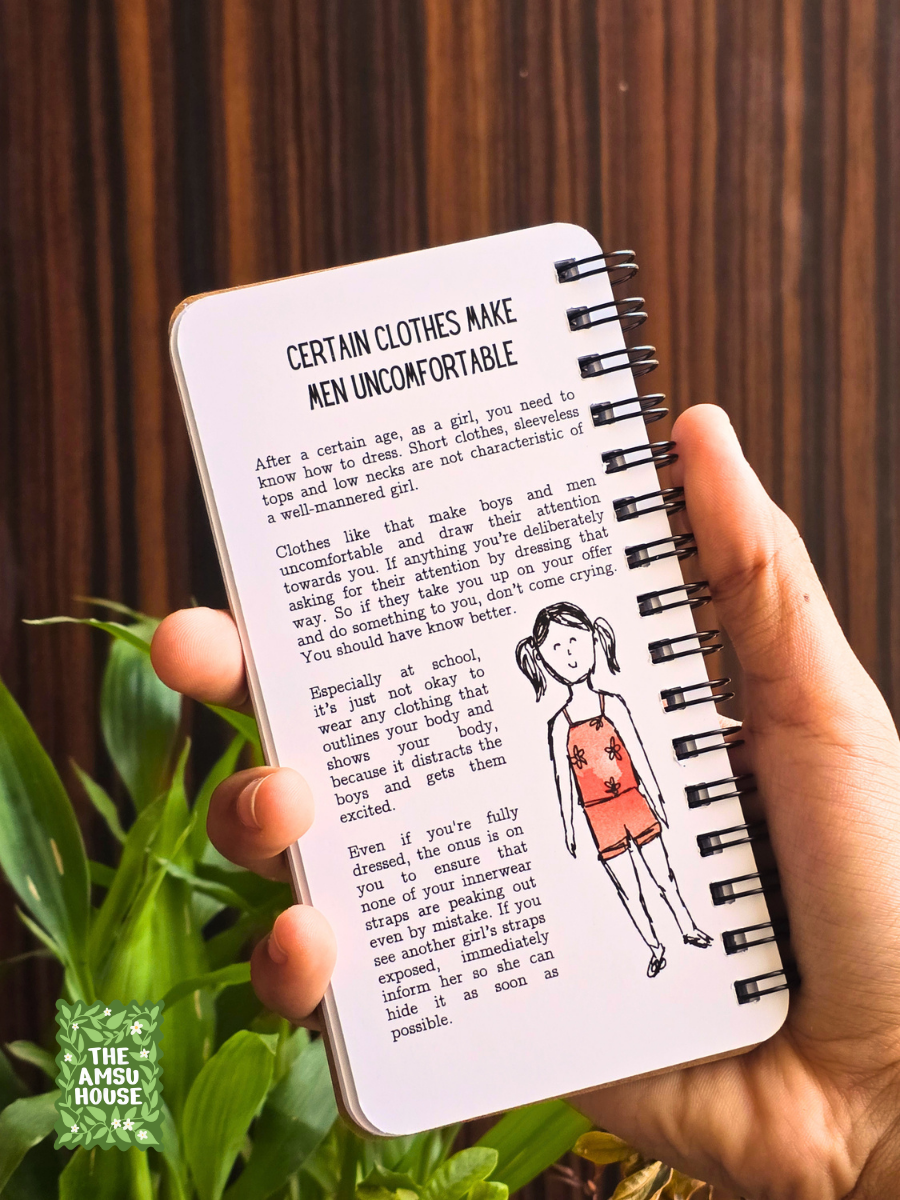 CERTAIN CLOTHES MAKE
MEN UNCOMFORTABLE
After a certain age, as a girl, you need to
know how to dress. Short clothes, sleeveless
tops and low necks are not characteristic of
a well-mannered girl.
Clothes like that make boys and men
uncomfortable and draw their attention
towards you. If anything you're deliberately
asking for their attention by dressing that
way. So if they take you up on your offer
and do something to you, don't come crying.
You should have know better.
Especially at school,
it's just not okay to
wear any clothing that
outlines your body and
shows your body,
because it distracts the
boys and gets them
excited.
Even if you're fully
dressed, the onus is on
you to ensure that
none of your innerwear
straps are peaking out
even by mistake. If you
see another girl's straps
exposed, immediately
inform her so she can
hide it as soon as
possible.
THE
AMSU
HOUSE